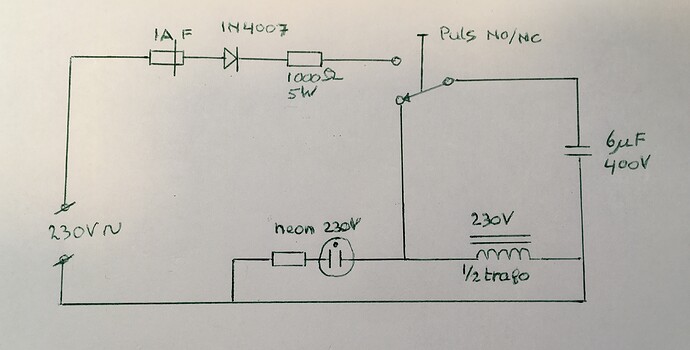 1A F
1N4007
1000Ω
5W
Puls NO/NC
6µF
400V
230V~
neon 230V
230V
1/2 trafo